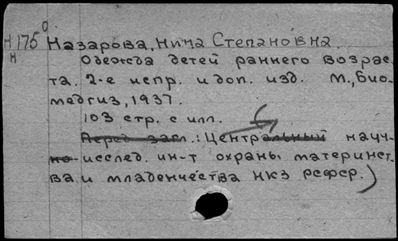 О.
Н175 Назарова, Нина Степановна.
Н Одежда детей раннего возрас-
та. 2-е испр. и доп. изд. М., Био-
медгиз, 1937.
103 стр. с илл.
Перед загл.: Центральный науч-
но-исслед. ин-т охраны материнст-
ва и младенчества НКЗ РСФСР.)